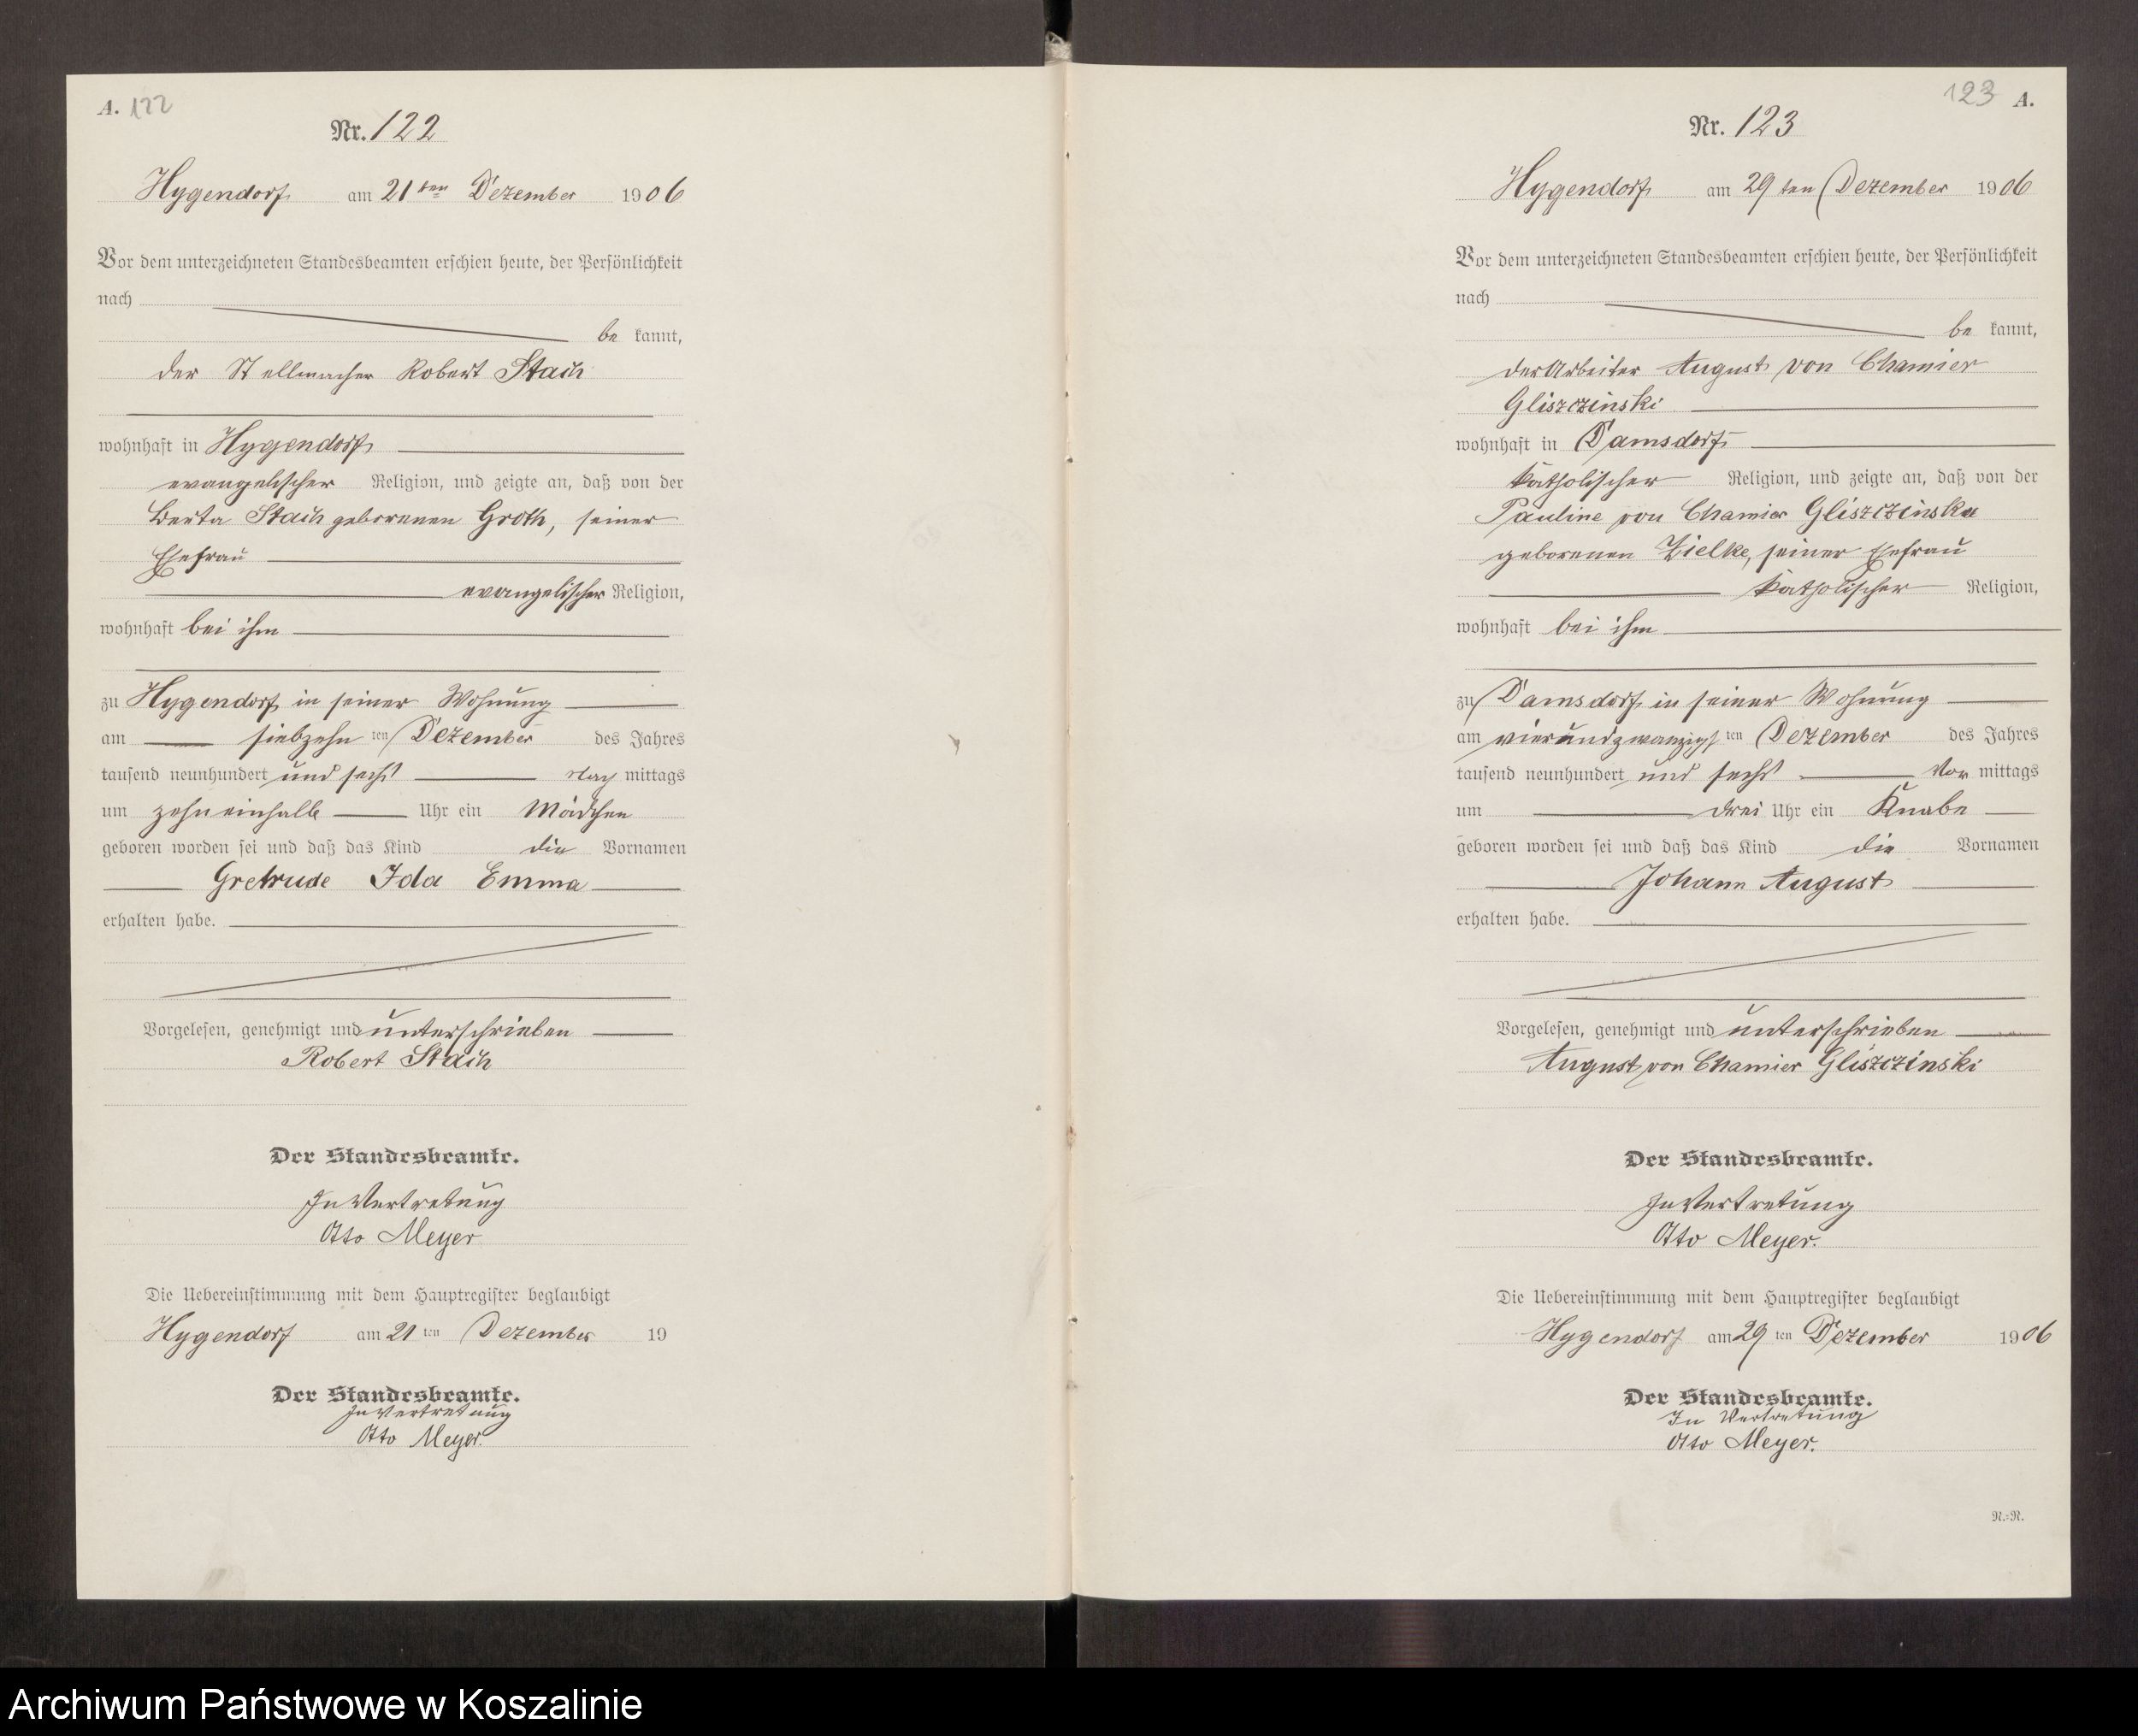 A. 122
Nr. 122
Hygendorf am 21ten Dezember 1906
Vor dem unterzeichneten Standesbeamten erschien heute, der Persönlichkeit
nach
be kannt,
der Stellmacher Robert Stach
wohnhaft in Hygendorf
evangelischer Religion, und zeigte an, daß von der
Berta Stach geborenen Groth, seiner
Ehefrau
evangelischer Religion,
wohnhaft bei ihm
zu Hygendorf in seiner Wohnung
am siebzehn ten Dezember des Jahres
tausend neunhundert und sechs Nach mittags
um zehneinhalb Uhr ein Mädchen
geboren worden sei und daß das Kind die Vornamen
Gretrude Ida Emma
erhalten habe.
Vorgelesen, genehmigt und unterschrieben
Robert Stach
Der Standesbeamte.
In Vertretung
Otto Meyer
Die Uebereinstimmung mit dem Hauptregister beglaubigt
Hygendorf am 21 ten Dezember 19
Der Standesbeamte.
In Vertretung
Otto Meyer.
123 A.
Nr. 123
Hygendorf am 29 ten Dezember 1906
Vor dem unterzeichneten Standesbeamten erschien heute, der Persönlichkeit
nach
be kannt,
der Arbeiter August von Chamier
Gliszczinski
wohnhaft in Damsdorf
katholischer Religion, und zeigte an, daß von der
Pauline von Chamier Gliszczinska
geborenen Zielke, seiner Ehefrau
katholischer Religion,
wohnhaft bei ihm
zu Damsdorf in seiner Wohnung
am vierundzwanzigs ten Dezember des Jahres
tausend neunhundert und sechs Vor mittags
um drei Uhr ein Knabe
geboren worden sei und daß das Kind die Vornamen
Johann August
erhalten habe.
Vorgelesen, genehmigt und unterschrieben
August von Chamier Gliszczinski
Der Standesbeamte.
In Vertretung
Otto Meyer.
Die Uebereinstimmung mit dem Hauptregister beglaubigt
Hygendorf am 29 ten Dezember 1906
Der Standesbeamte.
In Vertretung
Otto Meyer.
N.=N.
Archiwum Państwowe w Koszalinie